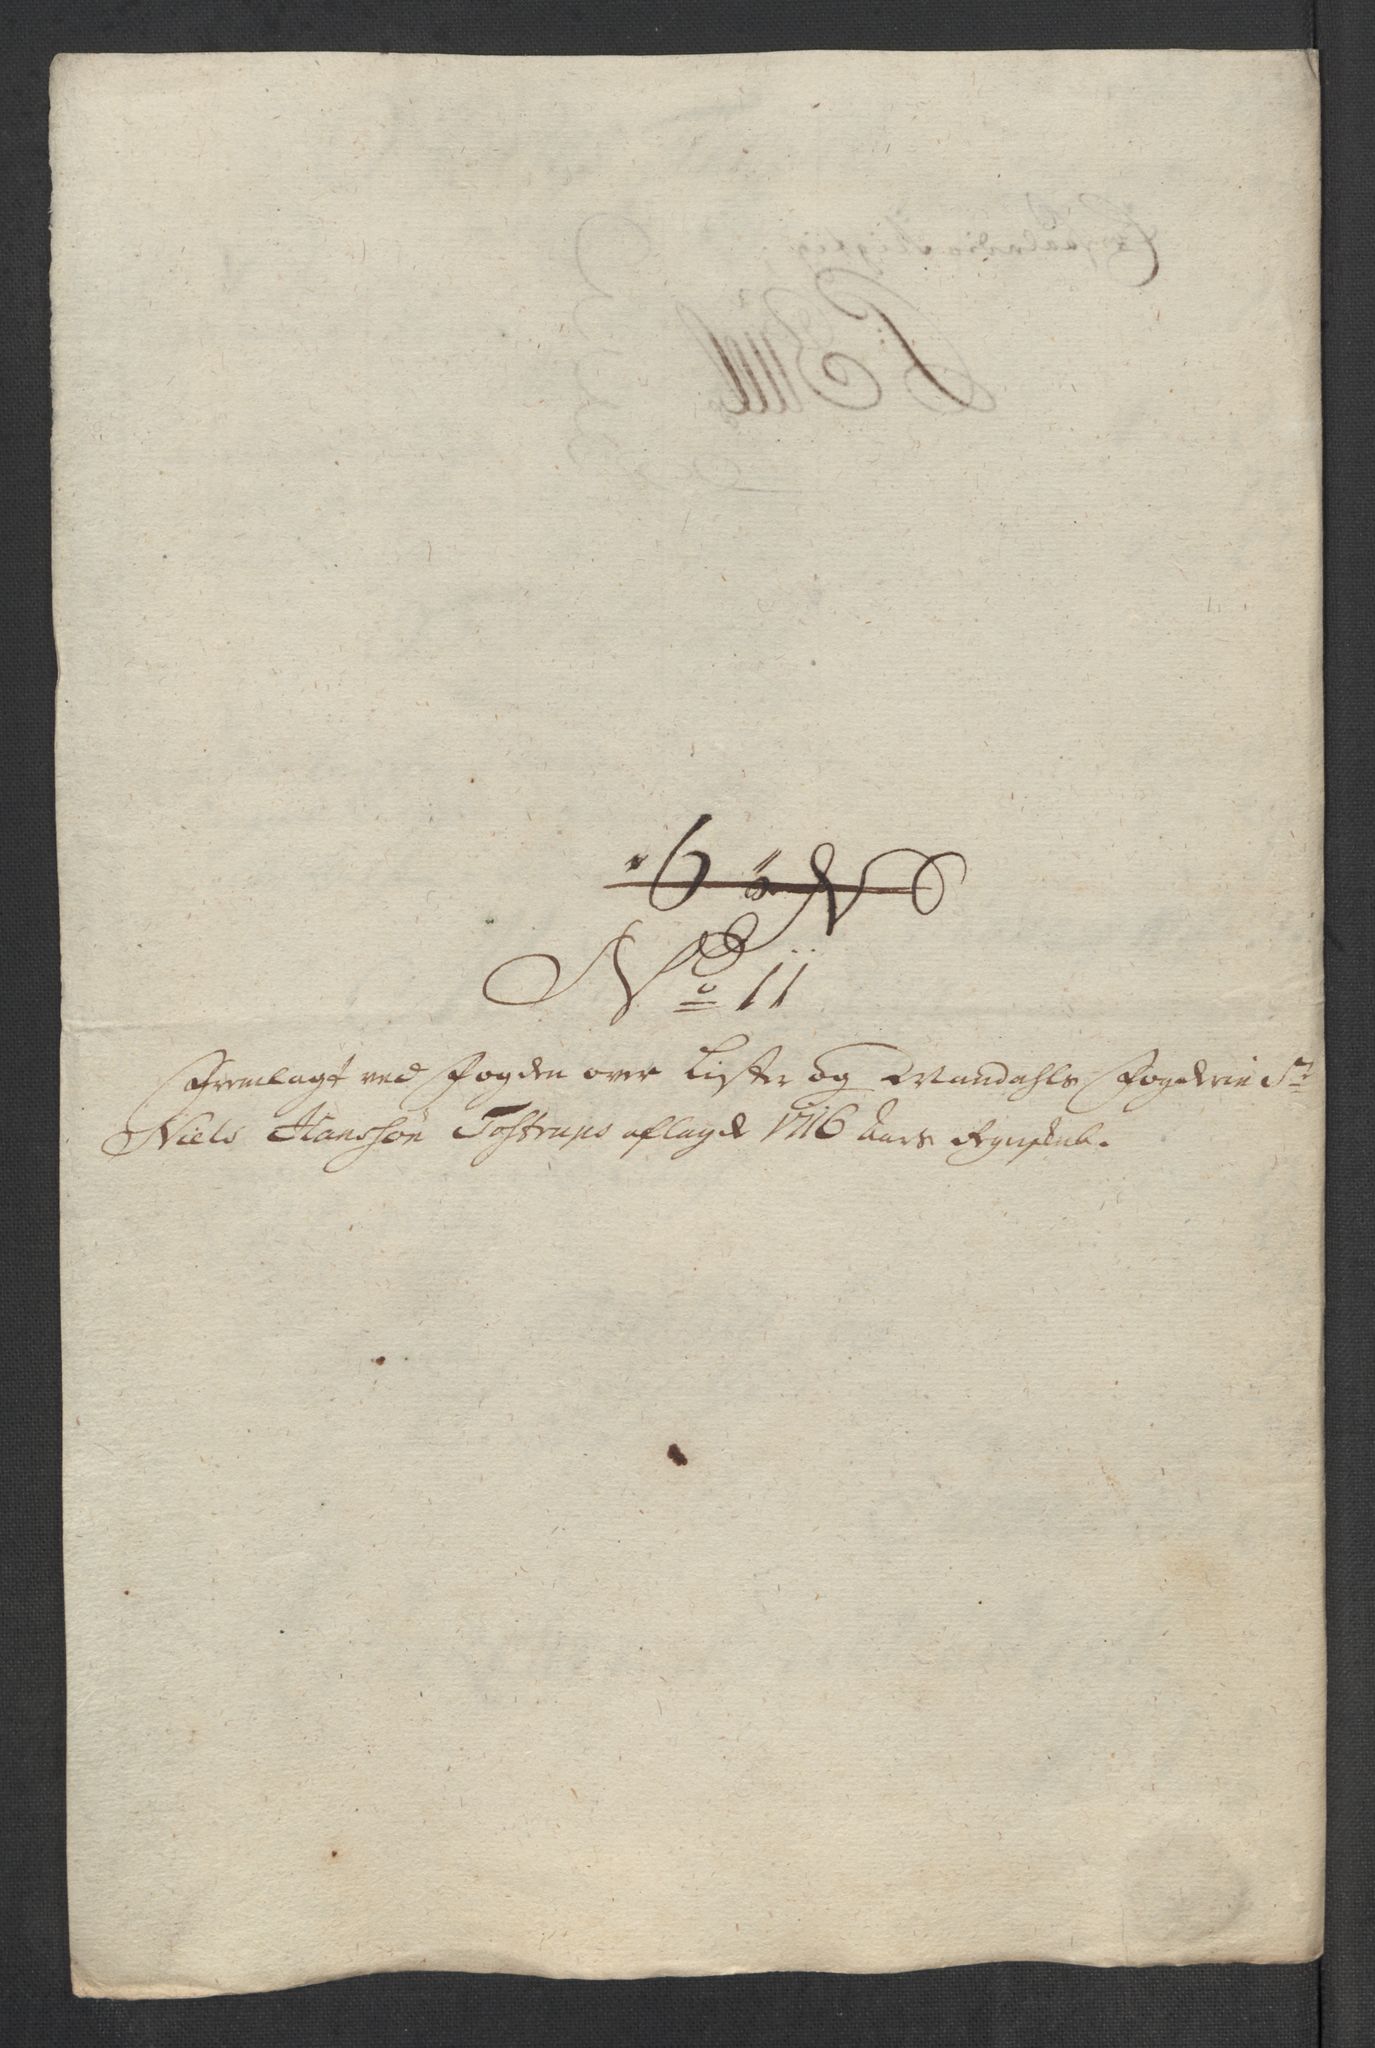 No 11
Fremlagt ved Fogden over Lister og Mandahls Fogderie Sr
Niels Hanssøn Tostrups aflagde 1716 Aars Regnskab.